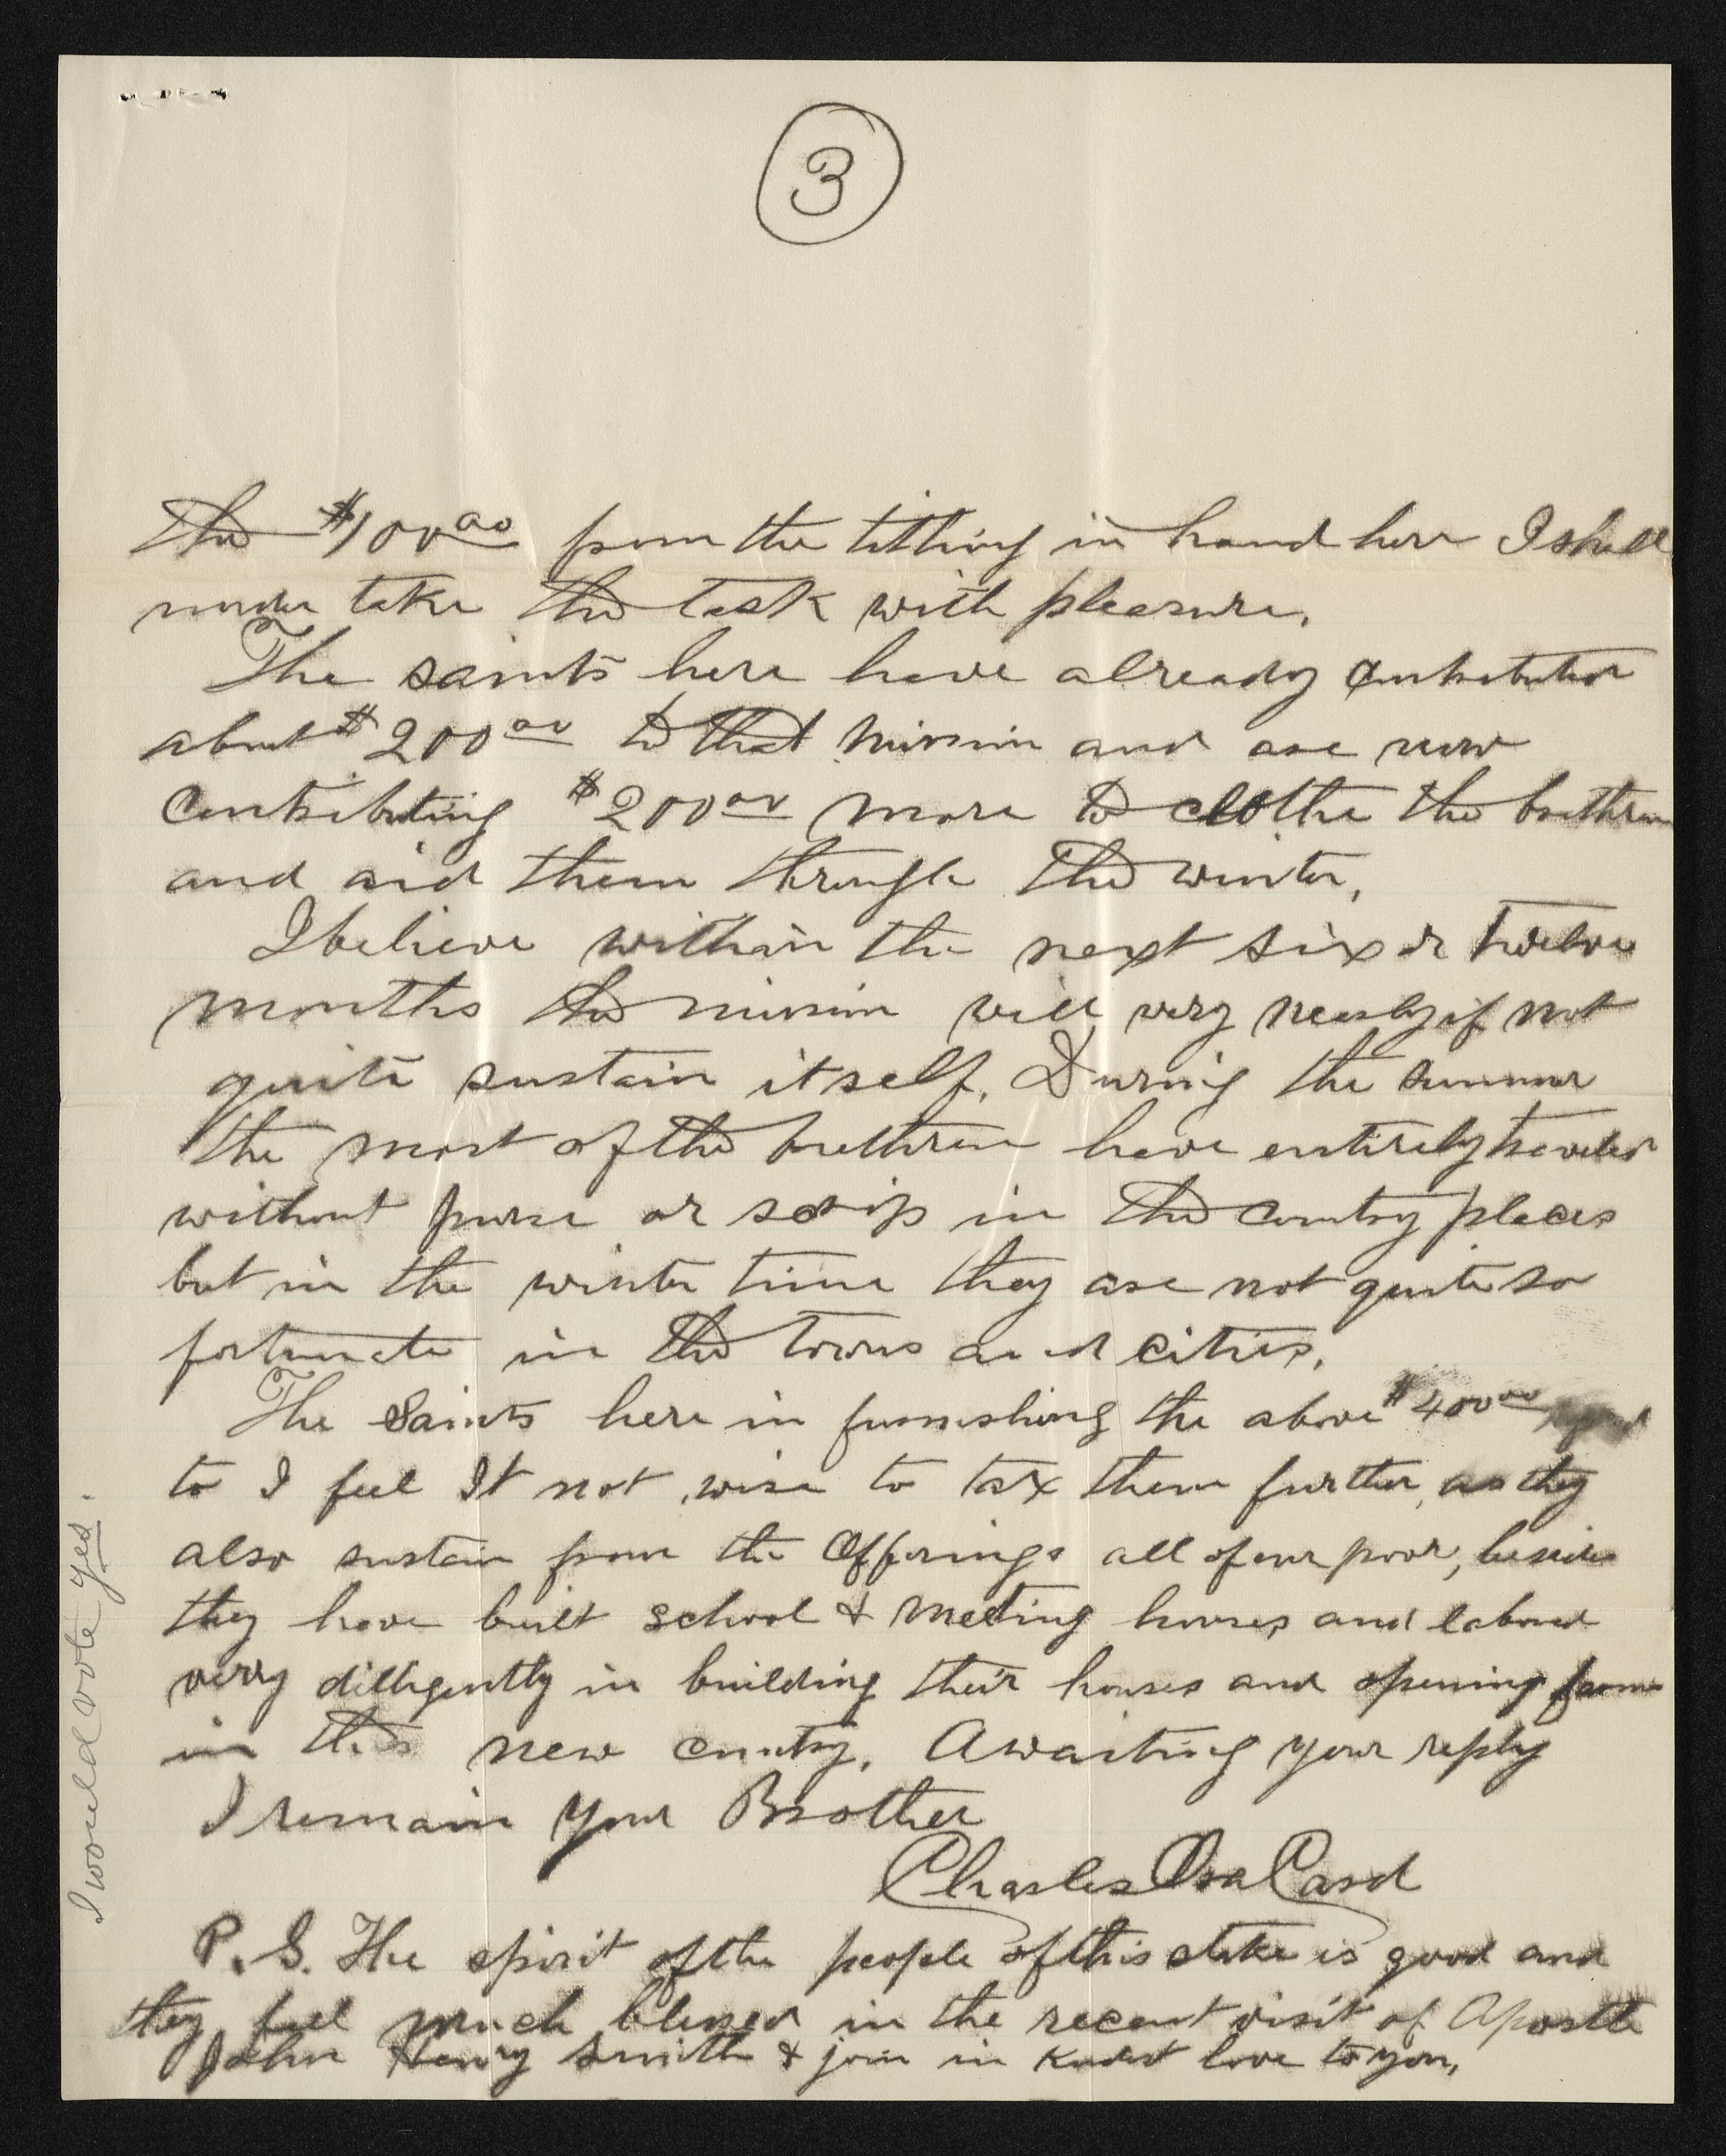 3
the $100⁰⁰ from the tithing in hand here I shall
under take the task with pleasure.
The saints here have already contributed
about $200⁰⁰ to that mission and are now
contributing $200⁰⁰ more to clothe the brethren
and aid them through the winter.
I believe within the next six or twelve
months the mission will very nearly if not
quite sustain itself. During the summer
the most of the brethren have entirely traveled
without purse or scrip in the country places
but in the winter time they are not quite so
fortunate in the towns and cities.
The Saints here in furnishing the above $400⁰⁰
to I feel It not wise to tax them further, as they
also sustain from the Offerings all of our poor, besides
they have built school & meeting houses and labored
very dilligently in building their houses and opening farms
in this new country. Awaiting your reply
I remain your Brother
Charles Ora Card
P.S. The spirit of the people of this stake is good and
they feel much blessed in the recent visit of Apostle
John Henry Smith & join in kindest love to you.
I would vote yes.